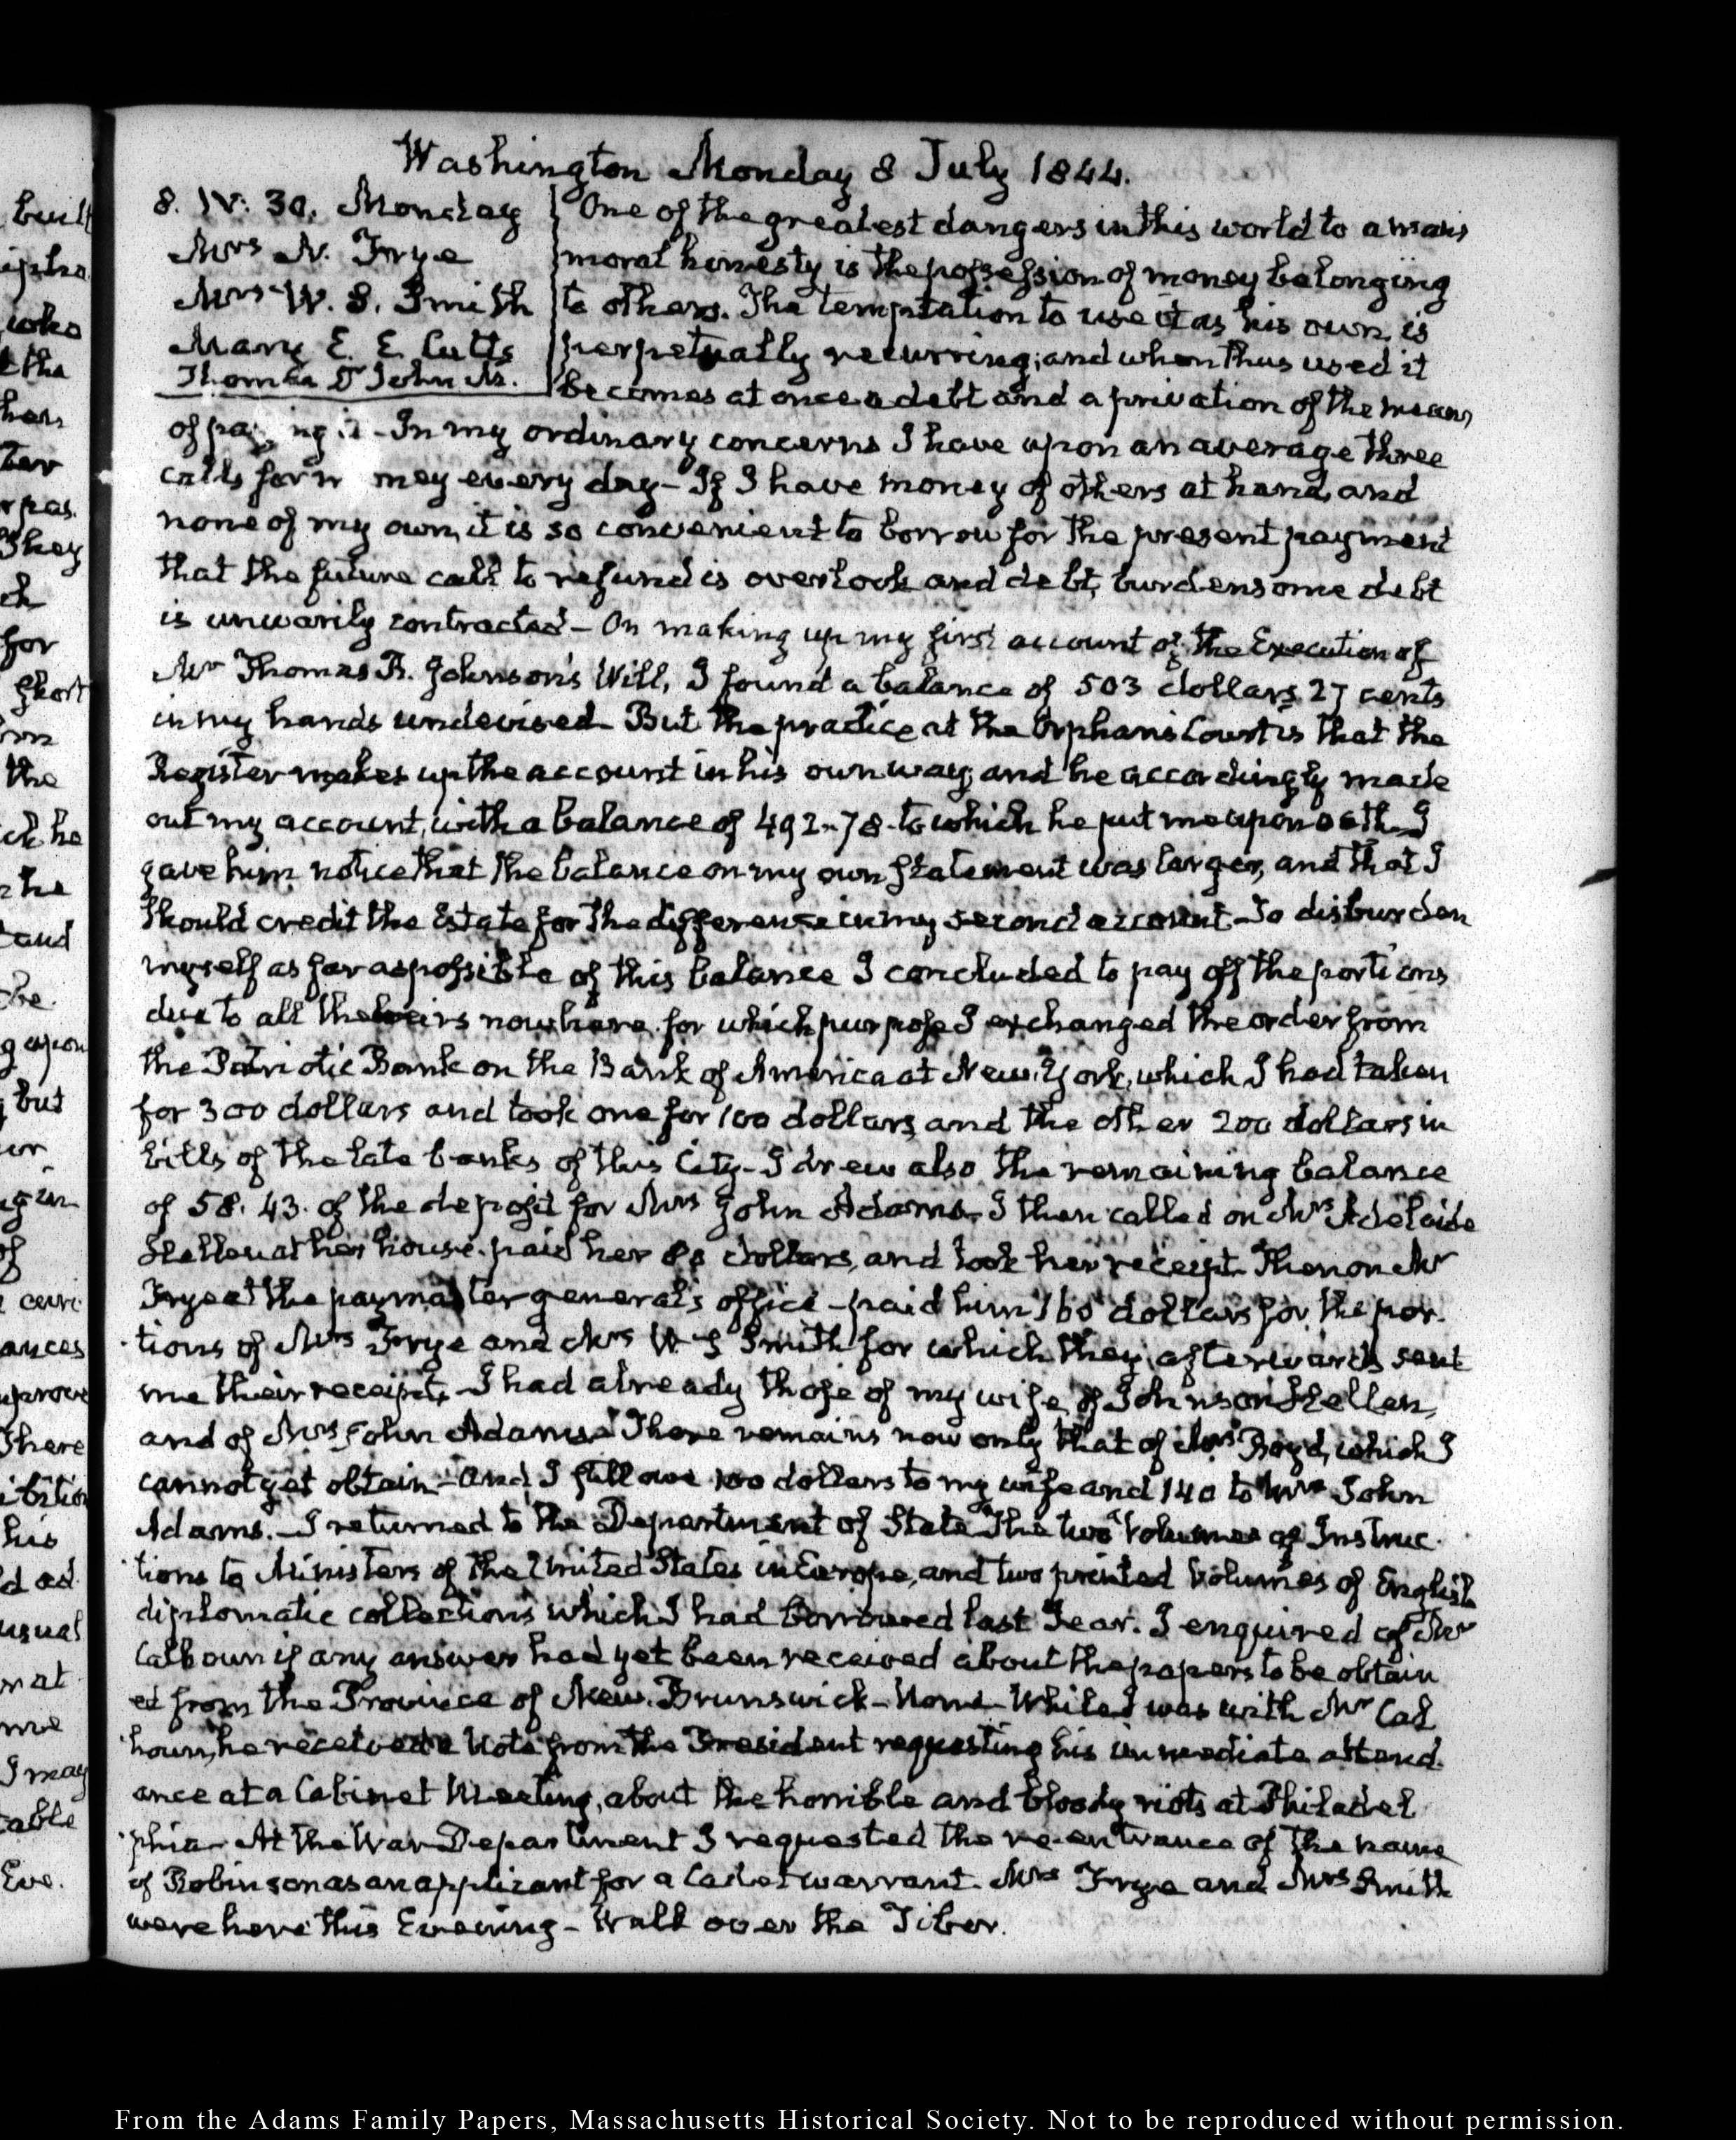 Washington Monday 8 July 1844.
8. IV: 30. Monday
Mrs N. Frye
Mrs W. S. Smith
Mary E. E. Cutts
Thomas B. Johnson
One of the greatest dangers in this world to a mans
moral honesty is the possession of money belonging
to others. The temptation to use it as his own, is
perpetually recurring; and when thus used it
becomes at once a debt and a privation of the means
of paying it - In my ordinary concerns I have upon an average three
calls for money every day - If I have money of others at hand, and
none of my own, it is so convenient to borrow for the present payment
that the future call to refund is overlook and debt, burdensome debt
is unwarily contracted - On making up my first account of the Execution of
Mr Thomas B. Johnson's Will, I found a balance of 503 dollars 27 cents
in my hands undevised - But the practice at the Orphans Court is that the
Register makes up the account in his own way, and he accordingly made
out my account, with a balance of 492-78. to which he put me upon oath - I
gave him notice that the balance on my own statement was larger, and that I
should credit the Estate for the difference in my second account - To disburden
myself as far as possible of this balance I concluded to pay off the portions
due to all the heirs now here. for which purpose I exchanged the order from
the Patriotic Bank on the Bank of America at New-York, which I had taken
for 300 dollars and took one for 100 dollars, and the other 200 dollars in
bills of the late banks of this City - I drew also the remaining balance
of 58. 43. of the deposit for Mrs John Adams. I then called on Mrs Adelaide
Hellen at her house. paid her 80 dollars, and took her receipt. Then on Mr
Frye at the paymaster general's office - paid him 160 dollars for the por-
tions of Mrs Frye and Mrs W. S Smith for which they afterwards sent
me their receipts - I had already those of my wife, of Johnson Hellen,
and of Mrs John Adams. There remains now only that of Mrs Boyd, which I
cannot yet obtain - And I still owe 100 dollars to my wife and 140 to Mrs John
Adams. - I returned to the Department of State The two Volumes of Instruc-
tions to Ministers of the United States in Europe, and two printed Volumes of English
diplomatic collections which I had borrowed last Year. I enquired of Mr
Calhoun if any answer had yet been received about the papers to be obtain
ed from the Province of New-Brunswick - None - While I was with Mr Cal
houn, he received a Note from the President requesting his immediate attend-
ance at a Cabinet Meeting, about the horrible and bloody riots at Philadel
phia - At the War Department I requested the re-entrance of the name
of Robinson as an applicant for a Cadet warrant. Mrs Frye and Mrs Smith
were here this Evening - Walk over the Tiber.
From the Adams Family Papers, Massachusetts Historical Society. Not to be reproduced without permission.